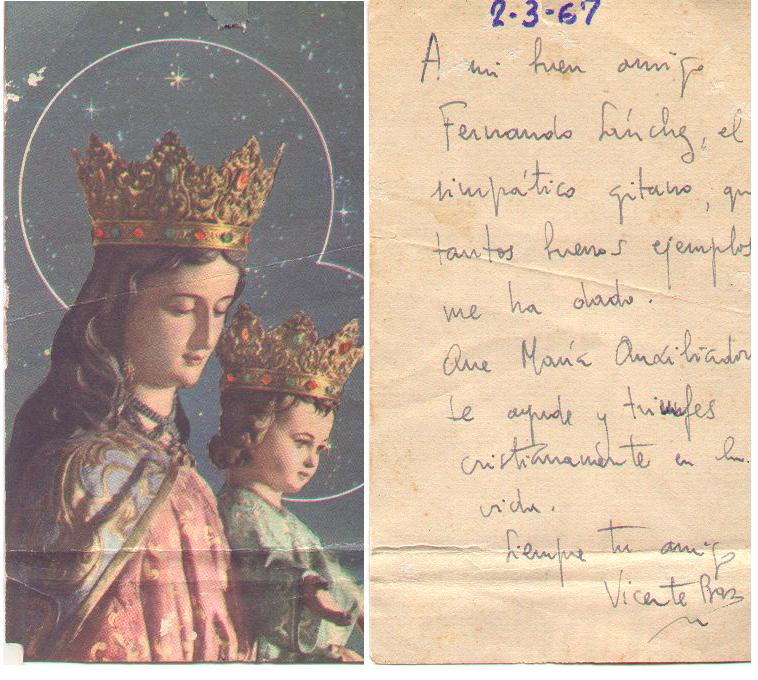 2-3-67
A mi buen amigo
Fernando Sánchez, el
simpático gitano, qu
tantos buenos ejemplos
me ha dado.
Que María Auxiliador
te ayude y triunfes
cristianamente en la
vida.
Siempre tu amigo
Vicente